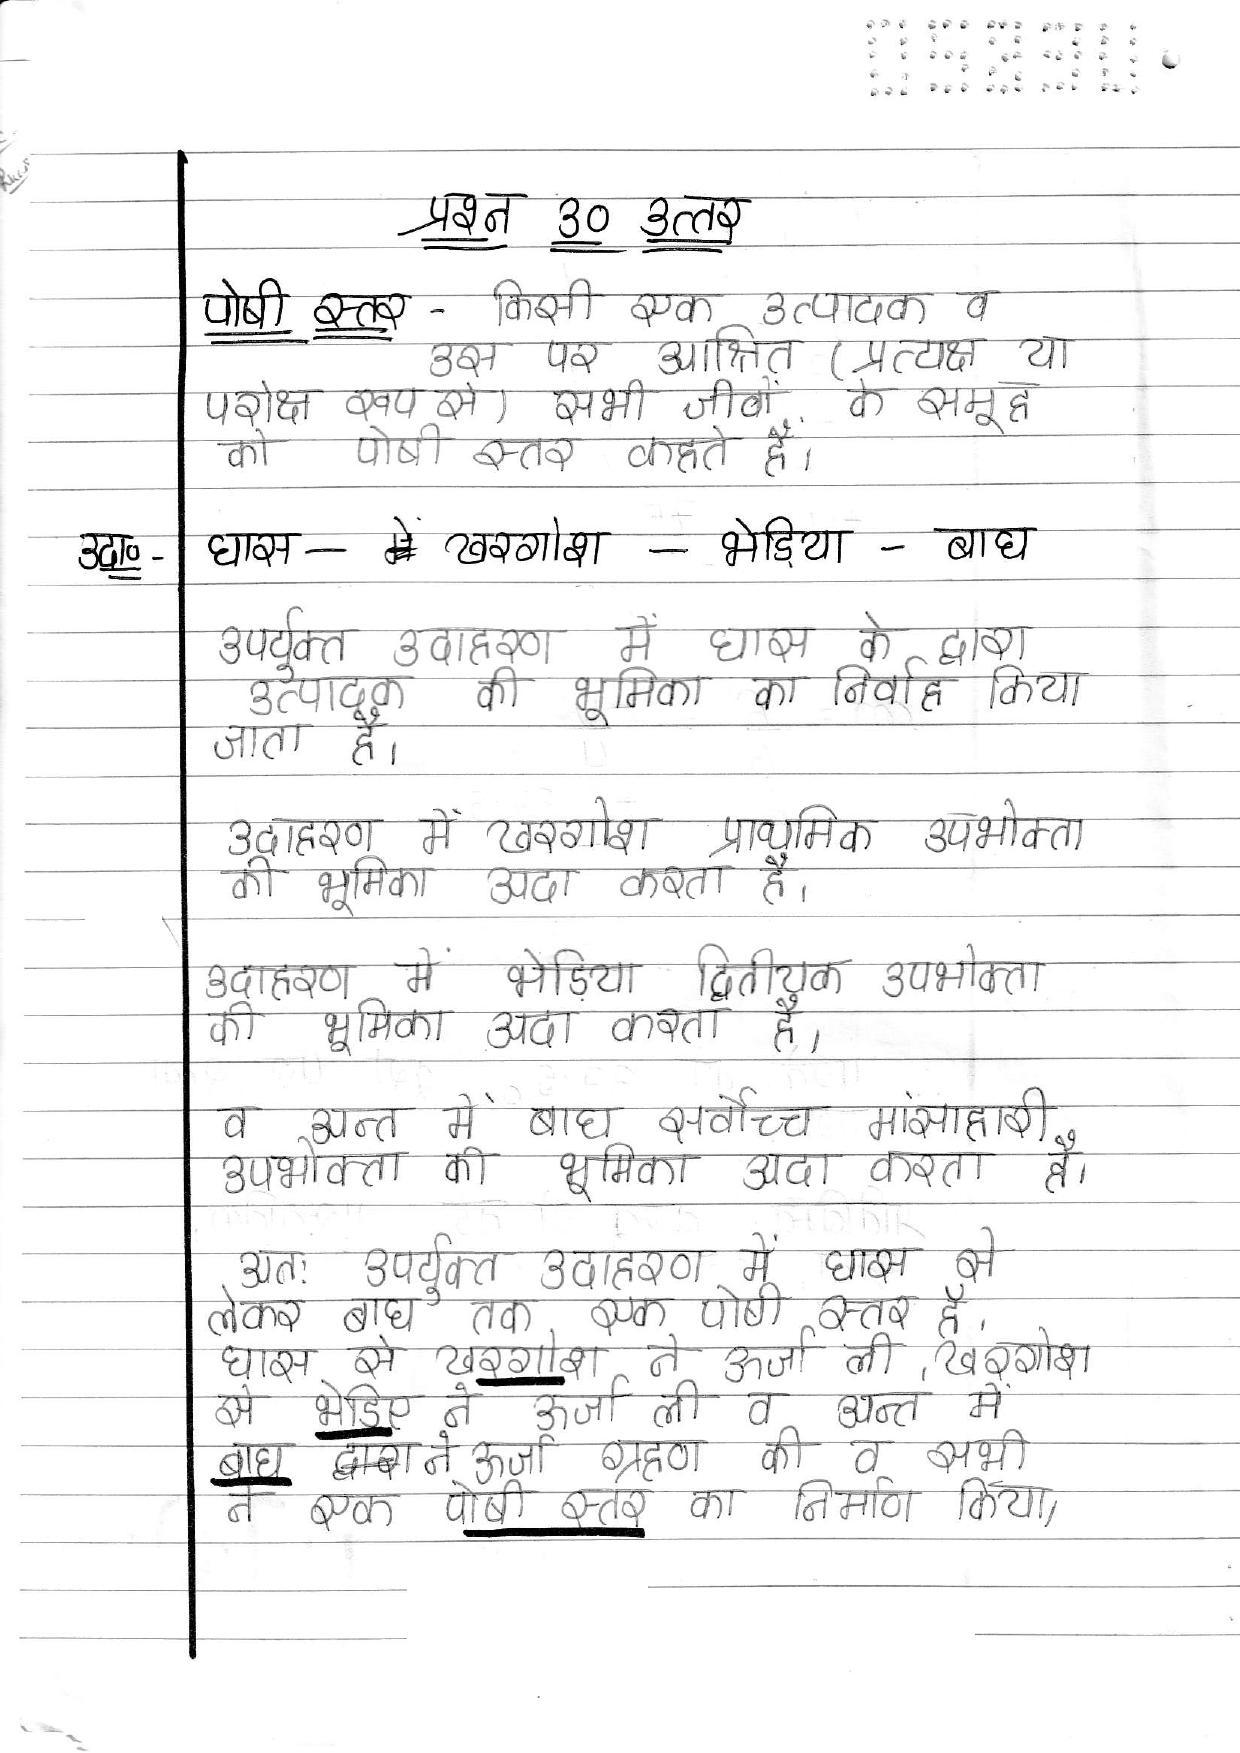 प्रश्न 30 उत्तर
पोषी स्तर - किसी एक उत्पादक व
उस पर आश्रित (प्रत्यक्ष या
परोक्ष रूप से) सभी जीवों के समूह
को पोषी स्तर कहते हैं।
उदा० - घास — खरगोश — भेड़िया - बाघ
उपर्युक्त उदाहरण में घास के द्वारा
उत्पादक की भूमिका का निर्वाह किया
जाता है।
उदाहरण में खरगोश प्राथमिक उपभोक्ता
की भूमिका अदा करता है।
उदाहरण में भेड़िया द्वितीयक उपभोक्ता
की भूमिका अदा करता है।
व अन्त में बाघ सर्वोच्च मांसाहारी
उपभोक्ता की भूमिका अदा करता है।
अतः उपर्युक्त उदाहरण में घास से
लेकर बाघ तक एक पोषी स्तर है।
घास से खरगोश ने ऊर्जा ली, खरगोश
से भेड़िए ने ऊर्जा ली व अन्त में
बाघ ने ऊर्जा ग्रहण की व सभी
ने एक पोषी स्तर का निर्माण किया।